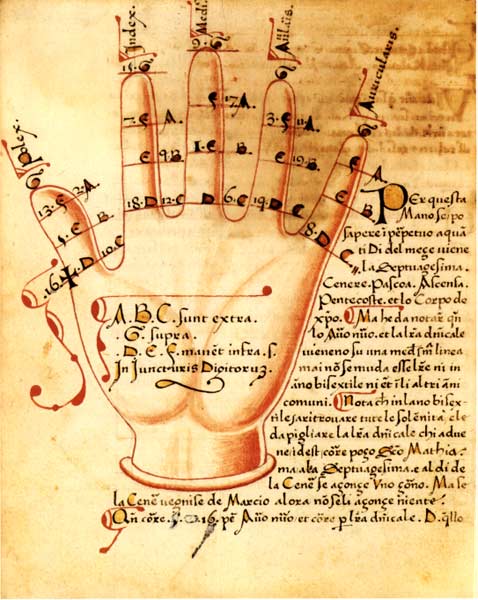 Index.
Medi
Auricularis.
Polex.
15. G
G
G
G
G
7. E A.
17. A.
3. E 11. A.
E 9. B
1. E B
E 19. B
E A
E B
13. E 2. A.
5. E B
18. D 12. C
D 6. C
19. D C
8. D C
16. D 10. C
A. B. C. sunt extra.
. G. supra.
. D. E. F. manet infra. s.
In Juncturis Digitorum.
Per questa
Mano se po
sapere i ppetuo a qua
ti Di del mese viene
la Septuagesima.
Cenere. Pascoa. Ascensa.
Pentecoste. et lo Corpo de
xpo. Ma he da notar qn
lo Auo nuo. et la lra dnicale
vieneno su una
mai no se muda essere ni in
ano bisextile ni et i li altri ani
comuni. Nota ch in lano bisex-
tile sa ri trovare tute le solenita el e
da pigliare la lra dnicale chi a due
ne i dest core pogo Sco Mathia.
ma a la Septuagesima. e al di de
la Cene se açonçe Uno çono. Ma se
la Cene venise de Marcio alora no se li açonçe niente.
Qn core. 16. per Auo nuo. et core p lra dnicale. D. qllo